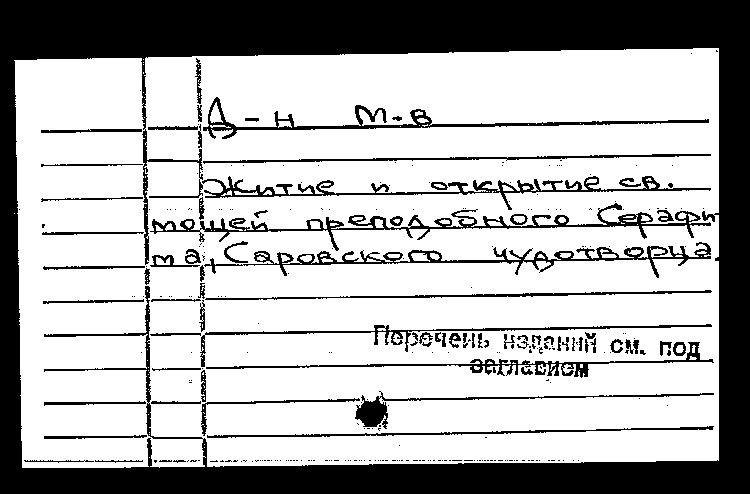 Д-н М-в
Житие и открытие св.
мощей преподобного Серафи
ма, Саровского чудотворца.
Перечень изданий см. под
заглавием